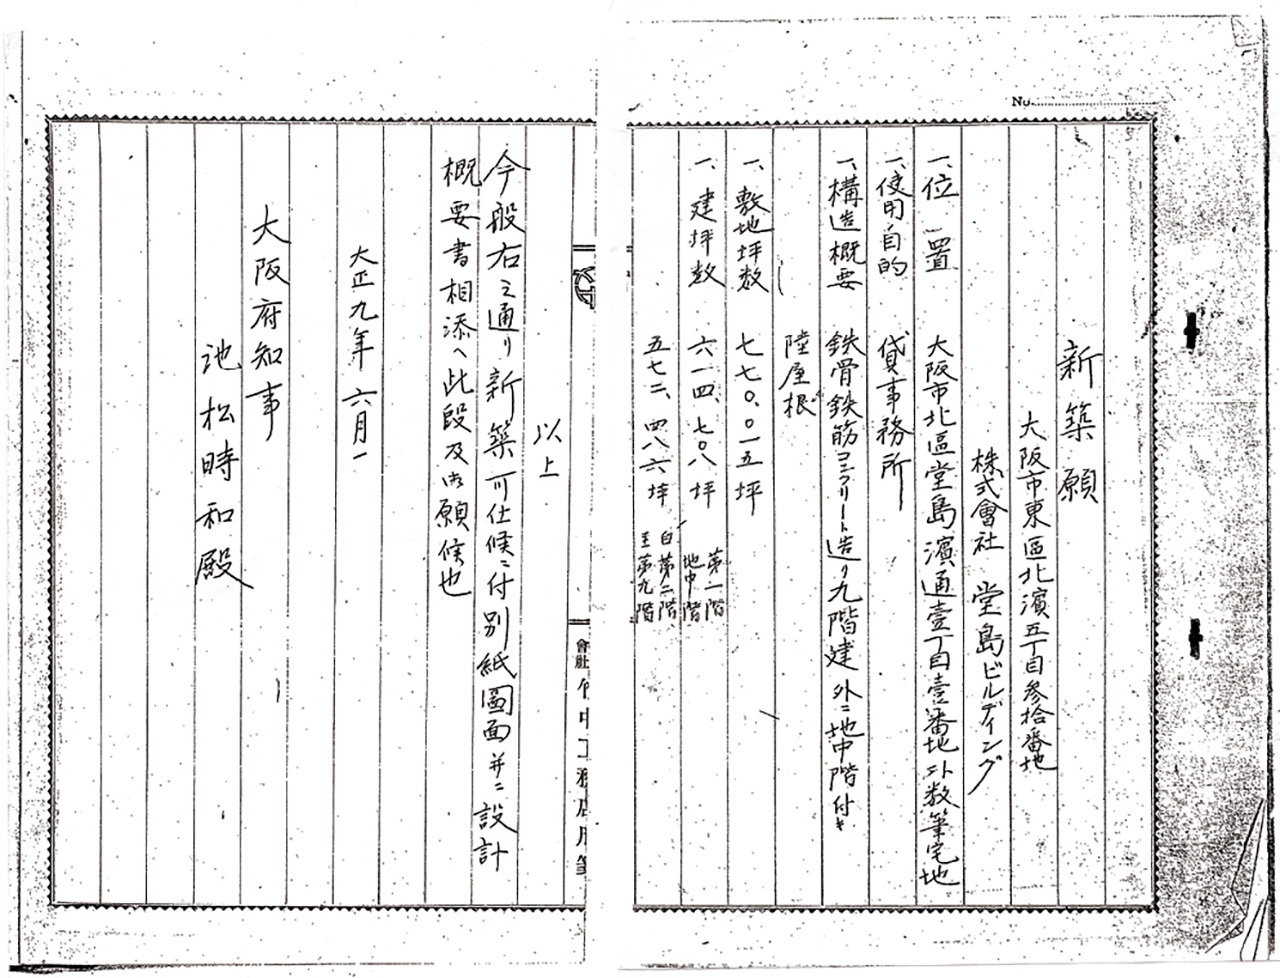 No.
新築願
大阪市東區北濱五丁目参拾番地
株式會社 堂島ビルディング
一、位置 大阪市北區堂島濱通壹丁目壹番地外数筆宅地
一、使用目的 貸事務所
一、構造概要 鉄骨鉄筋コンクリート造リ九階建 外ニ地中階付キ
陸屋根
一、敷地坪数 七七〇、〇一五坪
一、建坪数 六一四、七〇八坪 第一階 地中階
五七二、四八六坪 自第二階 至第九階
以上
今般右之通リ新築可仕候ニ付別紙圖面并ニ設計
概要書相添ヘ此段及御願候也
大正九年六月
大阪府知事
池松時和殿